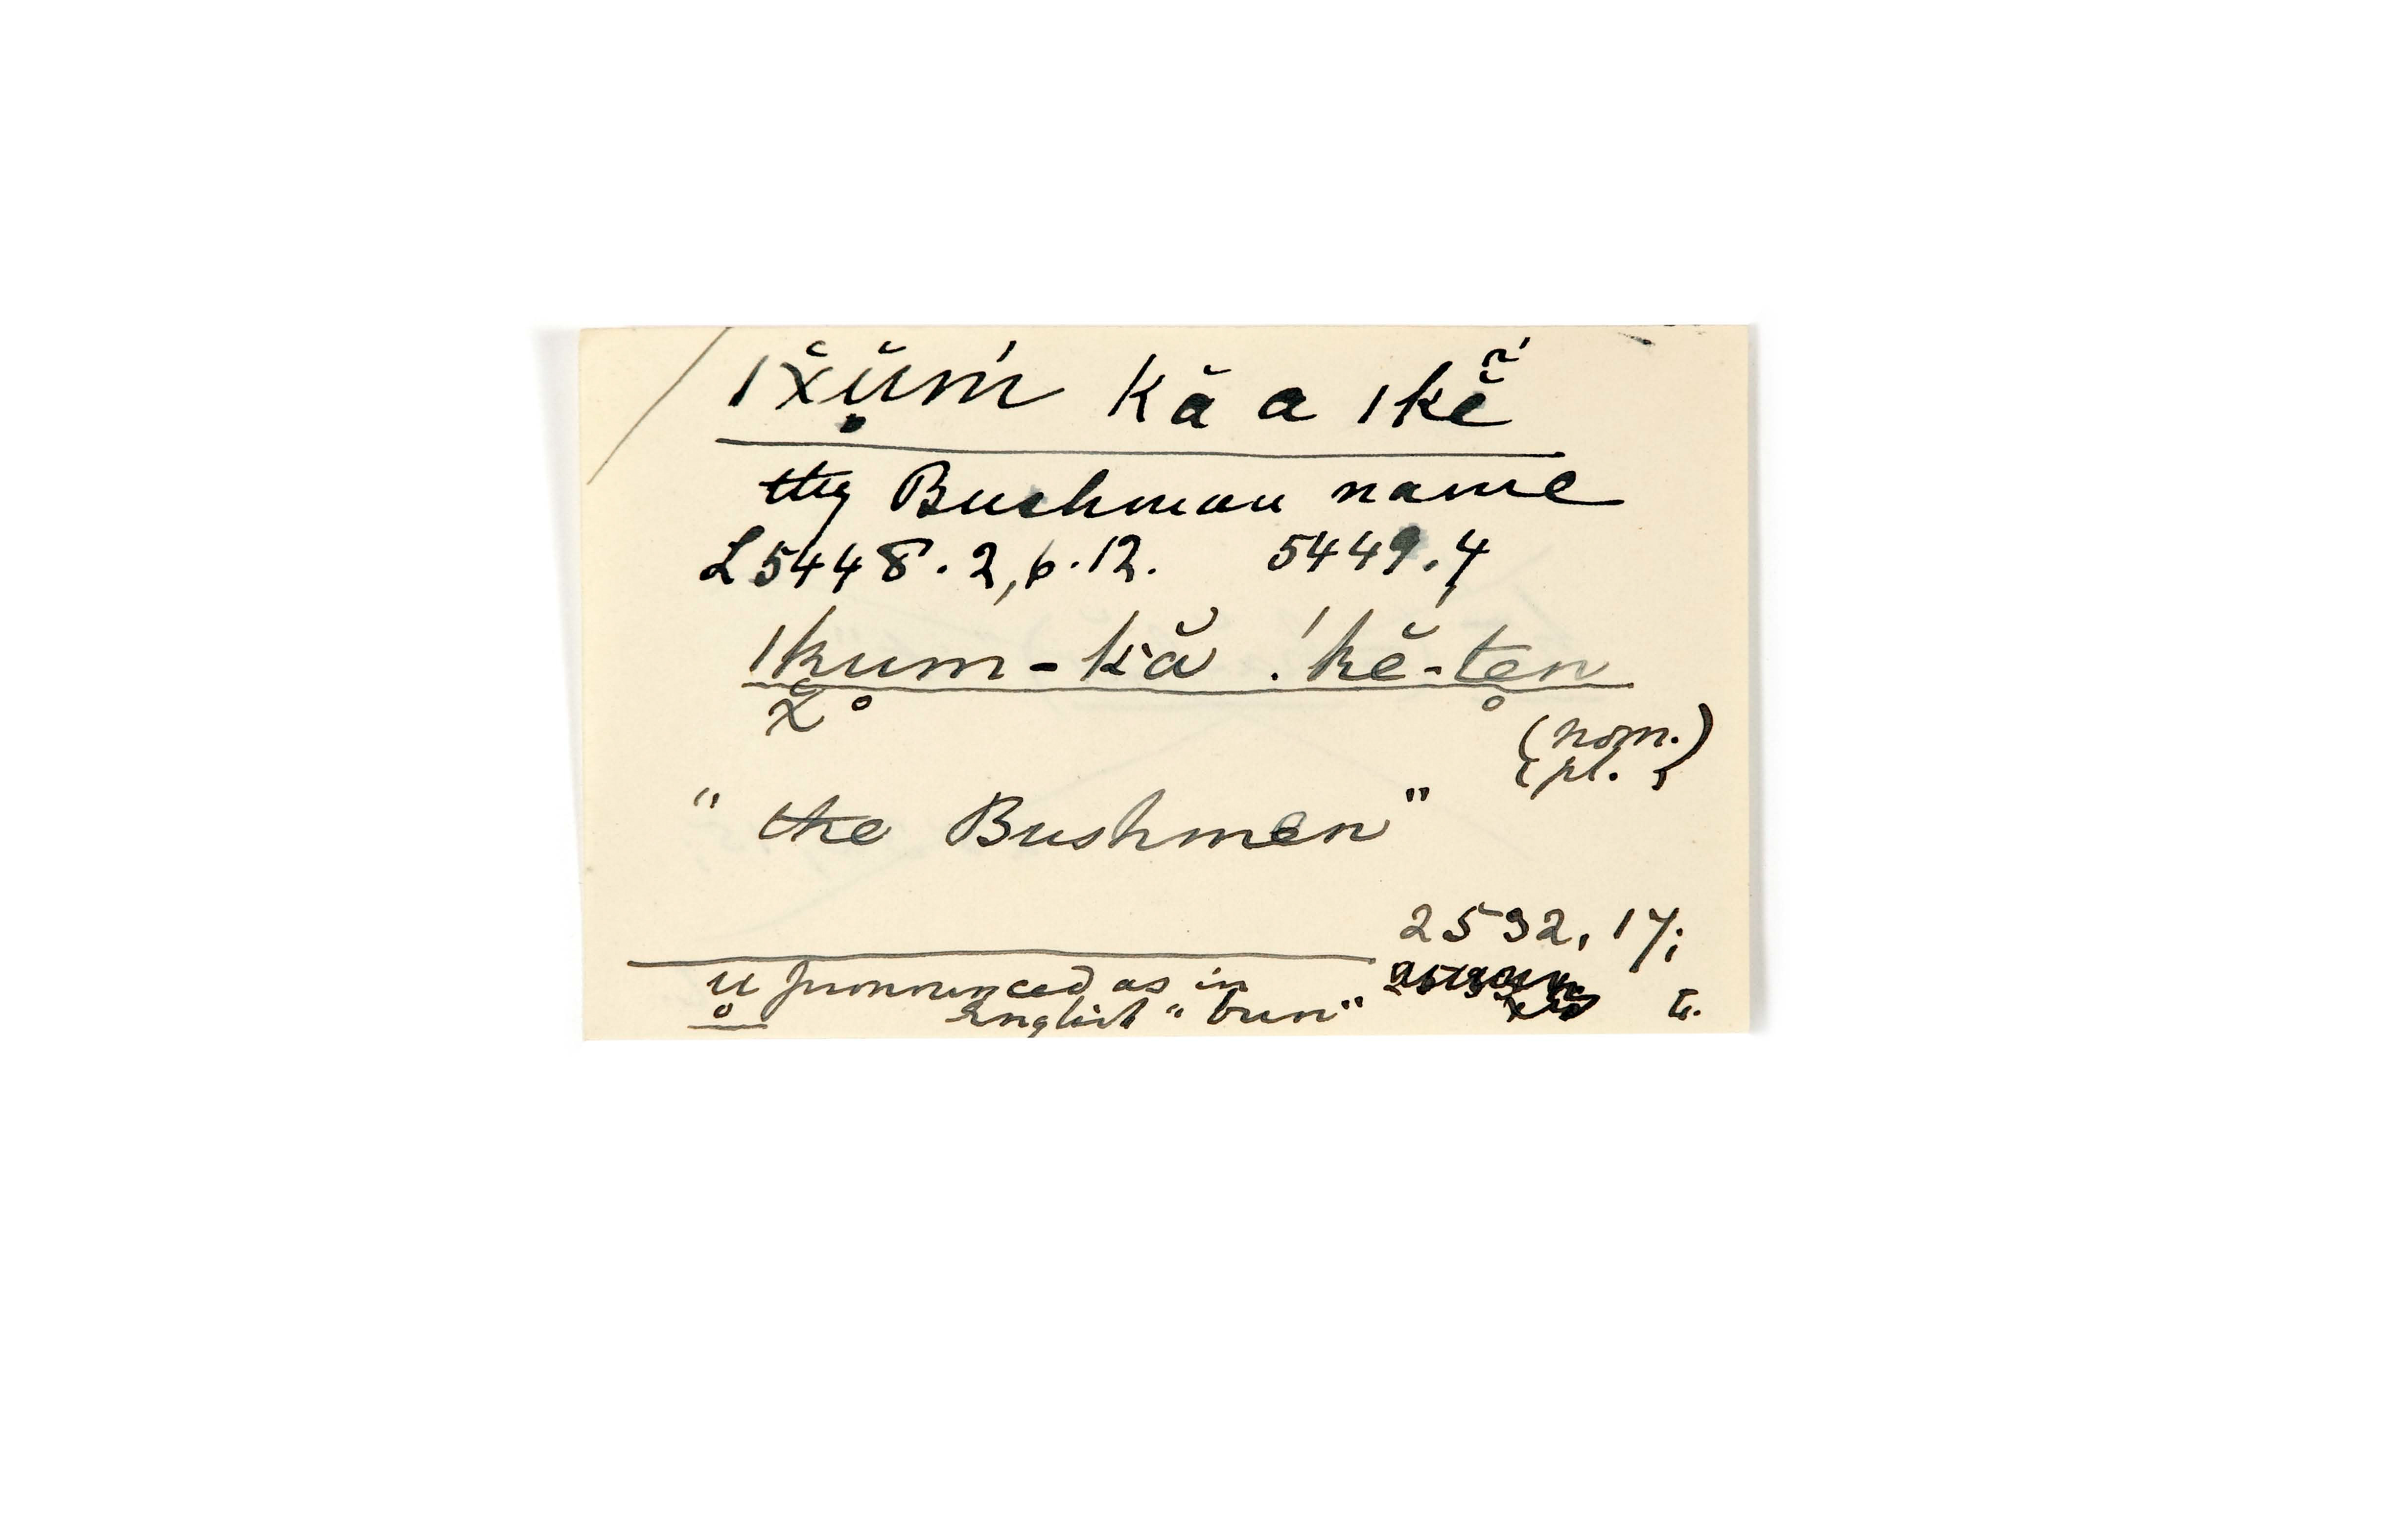 ǀx̆ŭ̥ḿ kă a ǀkĕ̃́
thy Bushman name
L 5448. 2, 6. 12. 5449. 4
ǀku̥m-kă !kĕ-te̥n
χ̆
(nom.)
(pl.)
"the Bushmen"
2592, 17;
u̥ pronounced as in
English "bun"